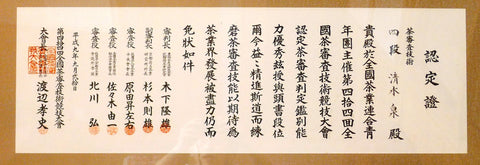 認定證
茶審査技術
四段 清水 泉 殿
貴殿於全國茶業連合青
年團主催第四拾四回全
國茶審査技術競技大會
認定茶審査判定鑑別能
力優秀茲授與頭書段位
爾今益々精進斯道而練
磨茶審査技能以期待為
茶業界發展被盡力仍而
免狀如件
審判長 木下隆雄
副審判長 杉本則雄
審査役 原田昇左右
審査役 佐々木由一
審査役 北川弘
平成九年九月
第四拾四回全國茶審査技術競技大會
大會會長 渡辺孝文